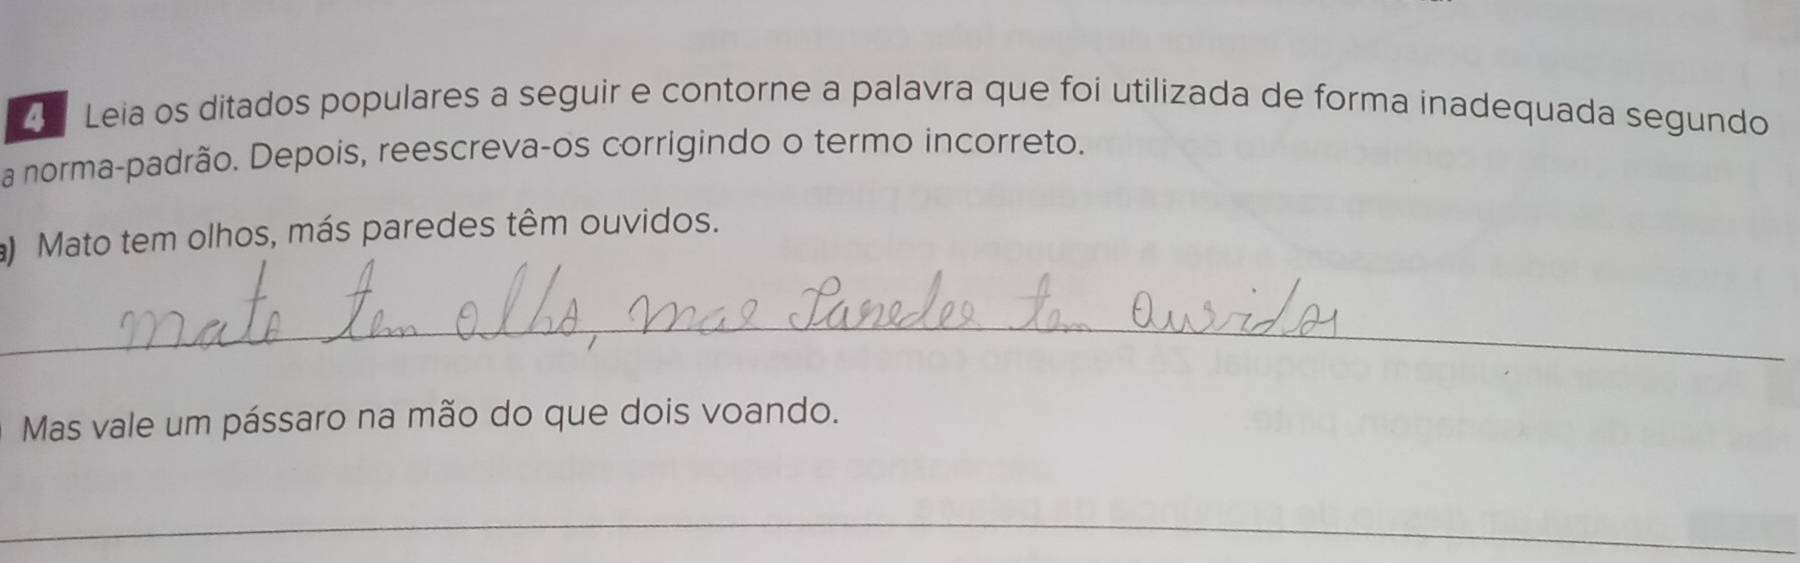 4 Leia os ditados populares a seguir e contorne a palavra que foi utilizada de forma inadequada segundo
a norma-padrão. Depois, reescreva-os corrigindo o termo incorreto.
a) Mato tem olhos, más paredes têm ouvidos.
mato tem olho, mas Paredes tem ouvidos
Mas vale um pássaro na mão do que dois voando.